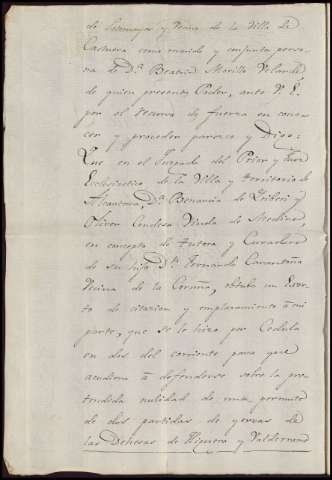 de Sotomayor y Vecino de la Villa de
Castuera como marido y conjunta perso-
na de Dª. Beatriz Morillo Velarde,
de quien presento Poder, ante V. E.
por el recurso de fuerza en cono-
cer y proceder parezco y Digo:
Que en el Juzgado del Prior y Juez
Eclesiastico de la Villa y territorio de
Alcantara, Dª. Benancia de y
Oliver Condesa Viuda de Medina,
en concepto de tutora y Curadora
de su hijo Dn. Fernando
Vecina de la Coruña, obtubo un Exor-
to de citacion y emplazamiento á mi
parte, que se le hizo por Cedula
en dos del corriente para que
acudiera á defenderse sobre la pre-
tendida nulidad de una permuta
de dos partidas de yervas de
las Dehesas de Higuera y